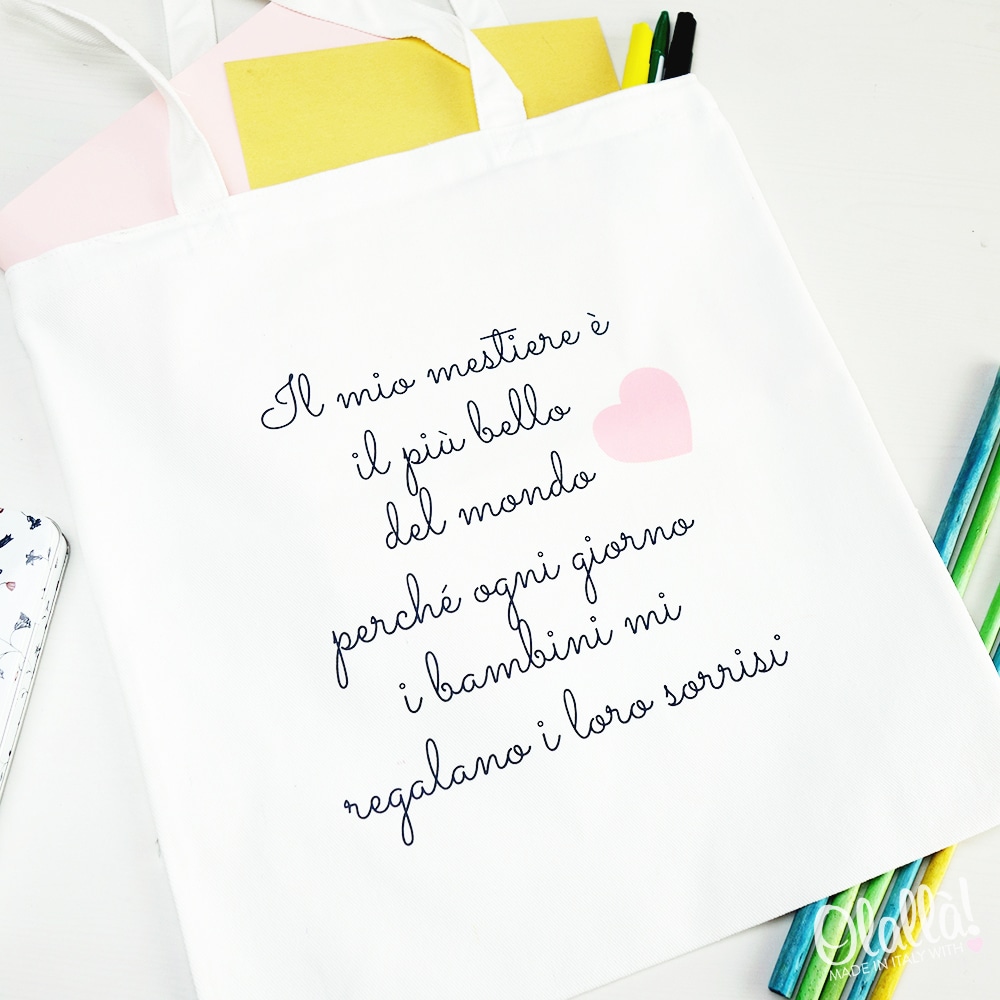 Il mio mestiere è
il più bello
del mondo
perché ogni giorno
i bambini mi
regalano i loro sorrisi
Olallà!
MADE IN ITALY WITH